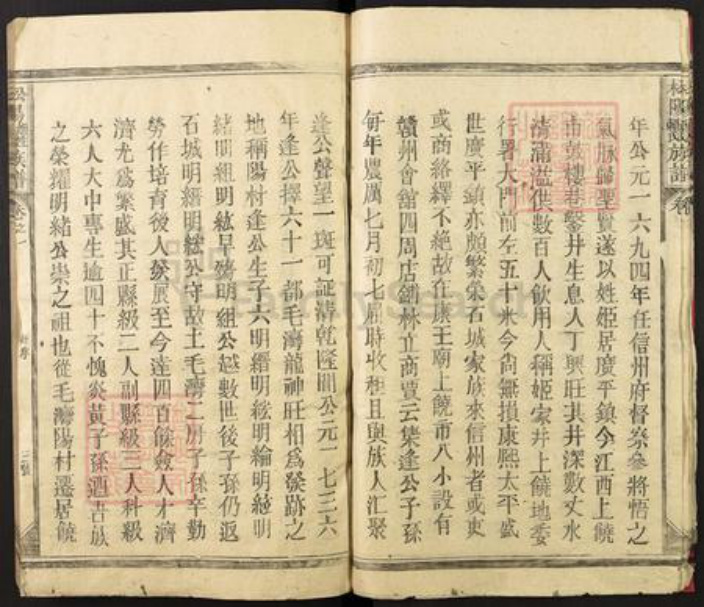 年公元一六九四年任信州府督察參將悟之
氣脉歸聖賢遂以姓姬居廣平鎮今江西上饒
市鼓樓巷鑿井生息人丁興旺其井深數丈水
清滿溢供數百人飲用人稱姬家井上饒地委
行署大門前左五十米今尚無損康熙太平盛
世廣平鎮亦頗繁榮石城家族來信州者或吏
或商絡繹不絶故在康王廟上饒市八小設有
贛州會館四周店鋪林立商賈云集逢公子孫
每年農厲七月初七屆時收租且與族人汇聚
逢公聲望一斑可証清乾隆間公元一七三六
年逢公擇六十一都毛灣龍神旺相爲發跡之
地稱陽村逢公生子六明縉明綬明綸明絰明
緒明組明紘早殤明組公越數世後子孫仍返
石城明縉明紘公守故土毛灣二房子孫辛勤
勞作培育後人發展至今達四百餘僉人才濟
濟尤爲繁盛其正縣級二人副縣級三人科級
六人大中專生逾四十不愧炎黃子孫廼吉族
之榮耀明緒公崇之祖也從毛灣陽村遷居饒
族譜
卷之一
三號
FamilySearch